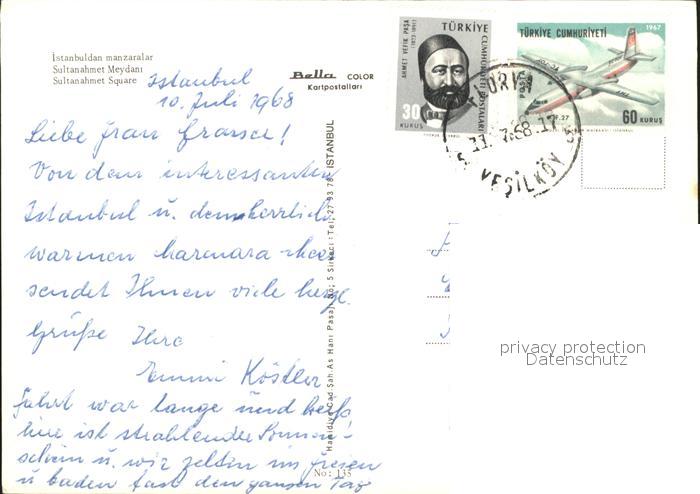 İstanbuldan manzaralar
Sultanahmet Meydanı
Sultanahmet Square
Bella COLOR
Kartpostalları
Istanbul
10. Juli 1968
Liebe Frau
Von dem interessanten
Istanbul u. dem herrlich
warmen Marmara-Meer
sendet Ihnen viele herzl.
Grüße Ihre
Emmi Köstler
Fahrt war lange und heiß
hier ist strahlender Sonnen-
schein u. wir zelten im freien
u baden fast den ganzen Tag
Hamidiye Cad. Şah. As Hanı Pasaj No; 5 Sirkeci: Tel; 27 93 78, İSTANBUL
No: 135
TÜRKİYE
CUMHURİYETİ POSTALARI
AHMET VEFİK PAŞA
(1823-1891)
30
KURUŞ
TÜRKİYE CUMHURİYETİ
1967
POSTA
F.27
60
KURUŞ
YEŞİLKÖY
privacy protection
Datenschutz